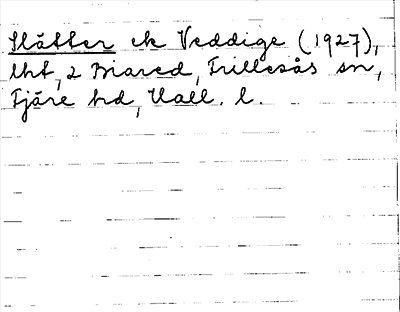 Slätter ek Veddige (1927),
lht, 2 Biared, Frillesås sn,
Fjäre hd, Hall. l.